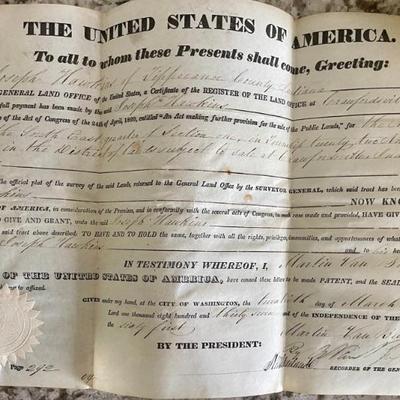 THE UNITED STATES OF AMERICA.
To all to whom these Presents shall come, Greeting:
Joseph Hawkins of Tippecanoe County Indiana
GENERAL LAND OFFICE of the United States, a Certificate of the REGISTER OF THE LAND OFFICE at Crawfordsvill
full payment has been made by the said Joseph Hawkins
of the Act of Congress of the 24th of April, 1820, entitled "An Act making further provision for the sale of the Public Lands," for the
the South East quarter of Section one in Township twenty two
in the District of Lands subject to sale at Crawfordsville Ind
the official plat of the survey of the said Lands, returned to the General Land Office by the SURVEYOR GENERAL, which said tract has been
NOW KNO
OF AMERICA, in consideration of the Premises, and in conformity with the several acts of Congress, in such case made and provided, HAVE GIVE
DO GIVE AND GRANT, unto the said Joseph Hawkins
said tract above described: TO HAVE AND TO HOLD the same, together with all the rights, privileges, immunities, and appurtenances of what
Joseph Hawkins
IN TESTIMONY WHEREOF, I, Martin Van B
OF THE UNITED STATES OF AMERICA, have caused these letters to be made PATENT, and the SEAL
to be hereunto affixed.
GIVEN under my hand, at the CITY OF WASHINGTON, the twentieth day of March
Lord one thousand eight hundred and thirty seven and of the INDEPENDENCE OF THE
sixty first
BY THE PRESIDENT: Martin Van Bu
By
RECORDER OF THE GENERAL
Page 292